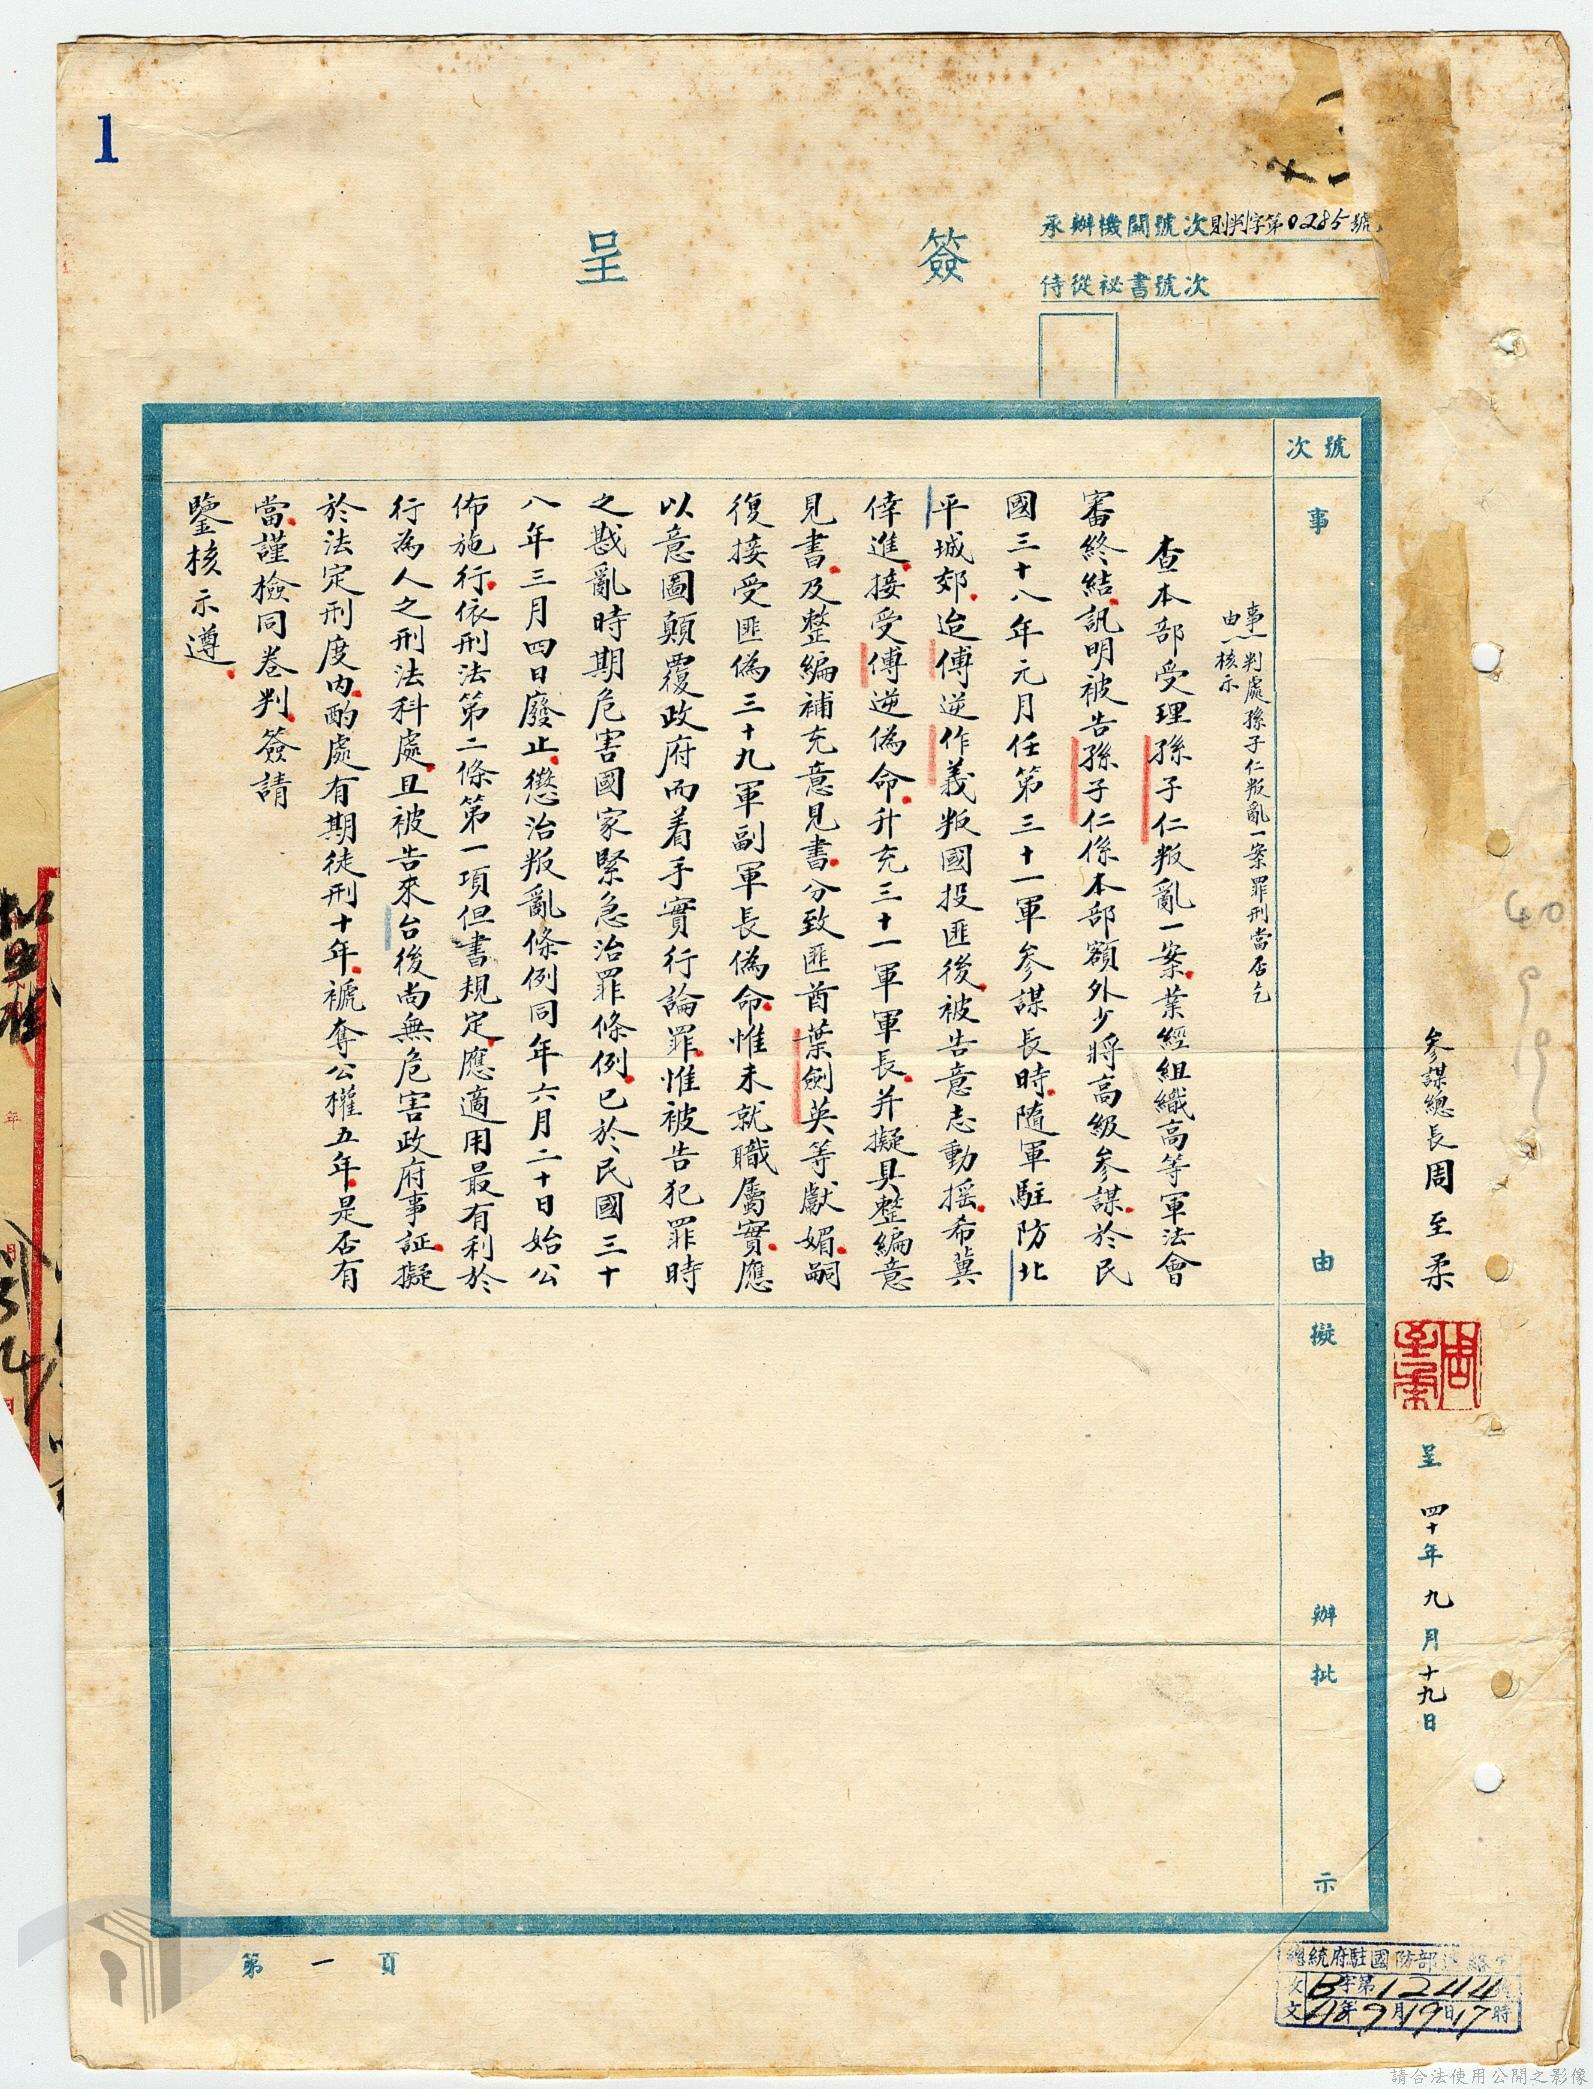 1
簽呈
承辦機關號次則判字第0285號
侍從祕書號次
號次
事由
擬辦
批示
事由：判處孫子仁叛亂一案罪刑當否乞
核示
查本部受理孫子仁叛亂一案業經組織高等軍法會
審終結訊明被告孫子仁係本部額外少將高級參謀於民
國三十八年元月任第三十一軍參謀長時隨軍駐防北
平城郊迨傅逆作義叛國投匪後被告意志動搖希冀
倖進接受傅逆偽命升充三十一軍軍長并擬具整編意
見書及整編補充意見書分致匪首葉劍英等獻媚嗣
復接受匪偽三十九軍副軍長偽命惟未就職屬實應
以意圖顛覆政府而着手實行論罪惟被告犯罪時
之戡亂時期危害國家緊急治罪條例已於民國三十
八年三月四日廢止懲治叛亂條例同年六月二十日始公
佈施行依刑法第二條第一項但書規定應適用最有利於
行為人之刑法科處且被告來台後尚無危害政府事証擬
於法定刑度內酌處有期徒刑十年褫奪公權五年是否有
當謹檢同卷判簽請
鑒核示遵
參謀總長周至柔
周至柔
呈 四十年九月十九日
40 9 19
第一頁
總統府駐國防部
收 B字第1244
文 40年9月19日17時
請合法使用公開之影像